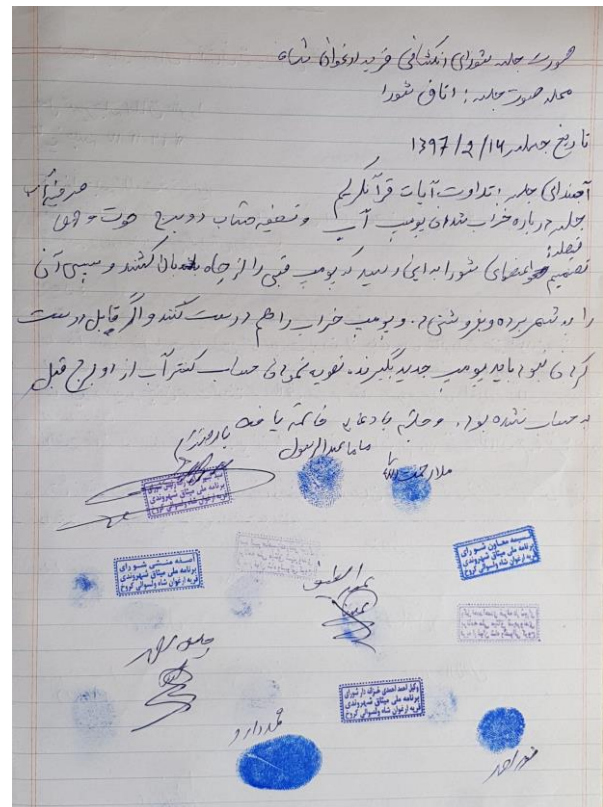 صورت جلسه شورای انکشافی قریه ارغوان شاه
محل صورت جلسه: اتاق شورا
تاریخ جلسه 1397/2/16
آجندای جلسه: تلاوت آیات قرآنکریم
جلسه درباره خراب شدن پومپ آب و تصفیه حساب دو برج حوت و صرفیه آب
فیصله:
تصمیم اعضای شورا به این رسید که پومپ قبلی را از چاه بالا کشند و سپس آن
را به شهر برده و بفروشند. و پومپ خراب را هم درست کنند و اگر قابل درست
کردن نبود باید پومپ جدید بگیرند. حساب کنتر آب از دو برج قبل
حساب نشده بود. و جلسه با دعای خاتمه یافت
ماما عبدالرسول
ملا رحمت الله
برنامه ملی میثاق شهروندی
نسیمه معاون شورای
برنامه ملی میثاق شهروندی
قریه ارغوان شاه ولسوالی کروخ
آصفه منشی شورای
برنامه ملی میثاق شهروندی
قریه ارغوان شاه ولسوالی کروخ
عبدالطیف
وکیل احمد احمدی خزانه دار شورای
برنامه ملی میثاق شهروندی
قریه ارغوان شاه ولسوالی کروخ
نور احمد